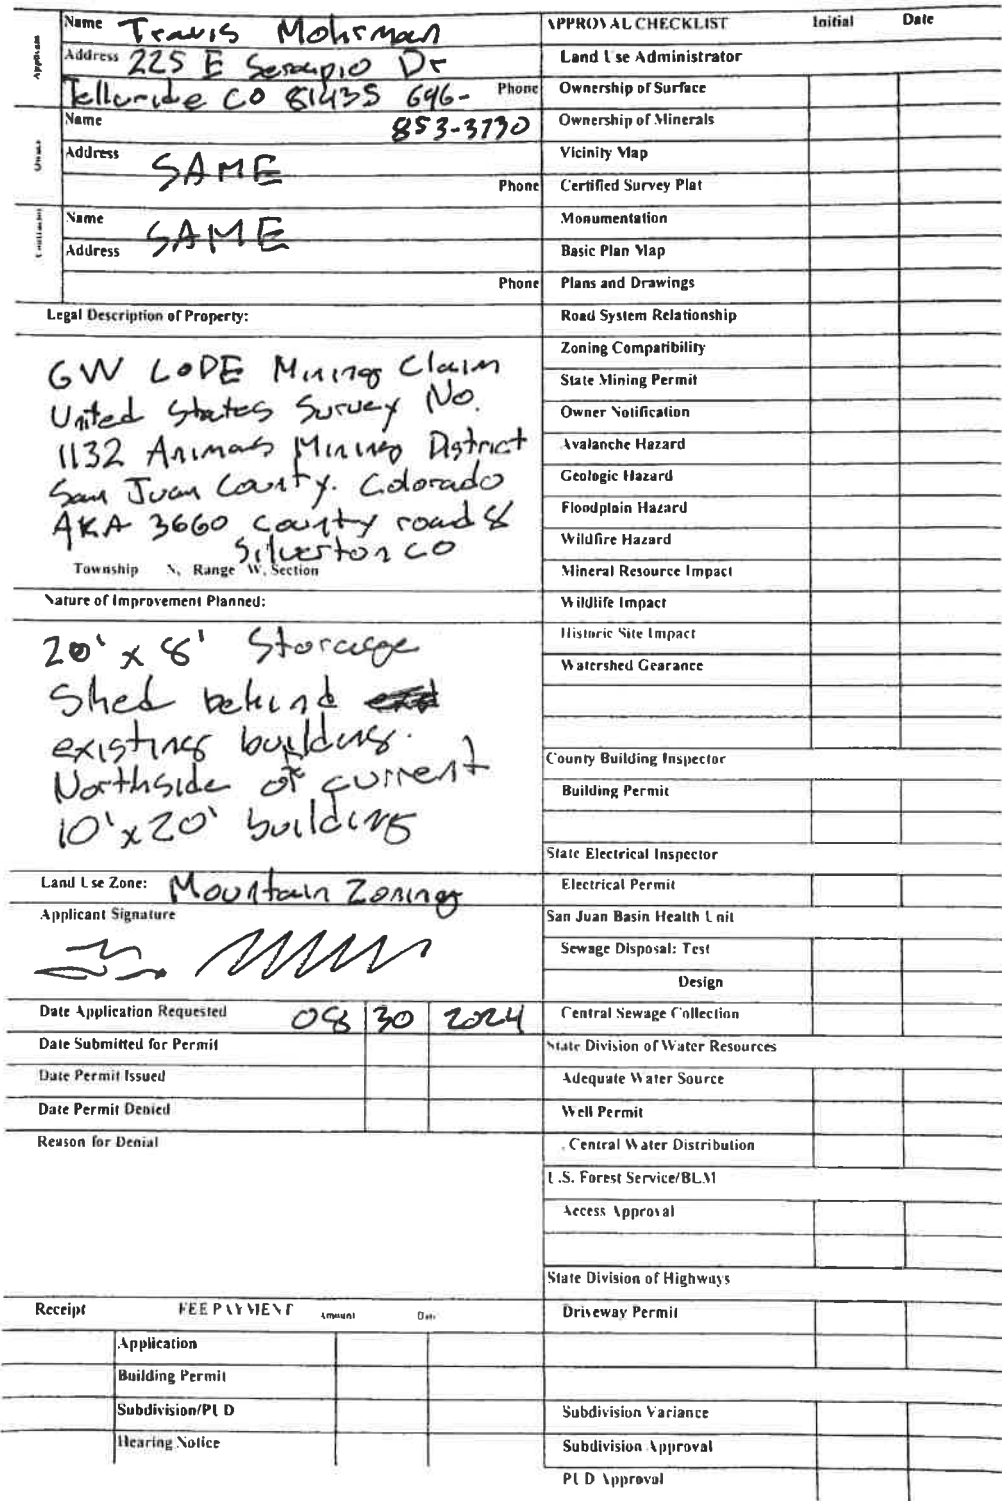 Applicant
Name Travis Mohrman
Address 225 E Serapio Dr
Telluride CO 81435 646-
Phone
853-3730
Owner
Name
Address SAME
Phone
Contractor
Name SAME
Address
Phone
Legal Description of Property:
GW LODE Mining Claim
United States Survey No.
1132 Animas Mining District
San Juan County. Colorado
AKA 3660 county road 8
Silverton CO
Township N, Range W, Section
Nature of Improvement Planned:
20' x 8' Storage
Shed behind
existing building.
Northside of current
10'x20' building
Land Use Zone: Mountain Zoning
Applicant Signature
Date Application Requested 08 30 2024
Date Submitted for Permit
Date Permit Issued
Date Permit Denied
Reason for Denial
Receipt FEE PAYMENT Amount Date
Application
Building Permit
Subdivision/PUD
Hearing Notice
APPROVAL CHECKLIST Initial Date
Land Use Administrator
Ownership of Surface
Ownership of Minerals
Vicinity Map
Certified Survey Plat
Monumentation
Basic Plan Map
Plans and Drawings
Road System Relationship
Zoning Compatibility
State Mining Permit
Owner Notification
Avalanche Hazard
Geologic Hazard
Floodplain Hazard
Wildfire Hazard
Mineral Resource Impact
Wildlife Impact
Historic Site Impact
Watershed Gearance
County Building Inspector
Building Permit
State Electrical Inspector
Electrical Permit
San Juan Basin Health Unit
Sewage Disposal: Test
Design
Central Sewage Collection
State Division of Water Resources
Adequate Water Source
Well Permit
Central Water Distribution
U.S. Forest Service/BLM
Access Approval
State Division of Highways
Driveway Permit
Subdivision Variance
Subdivision Approval
PUD Approval